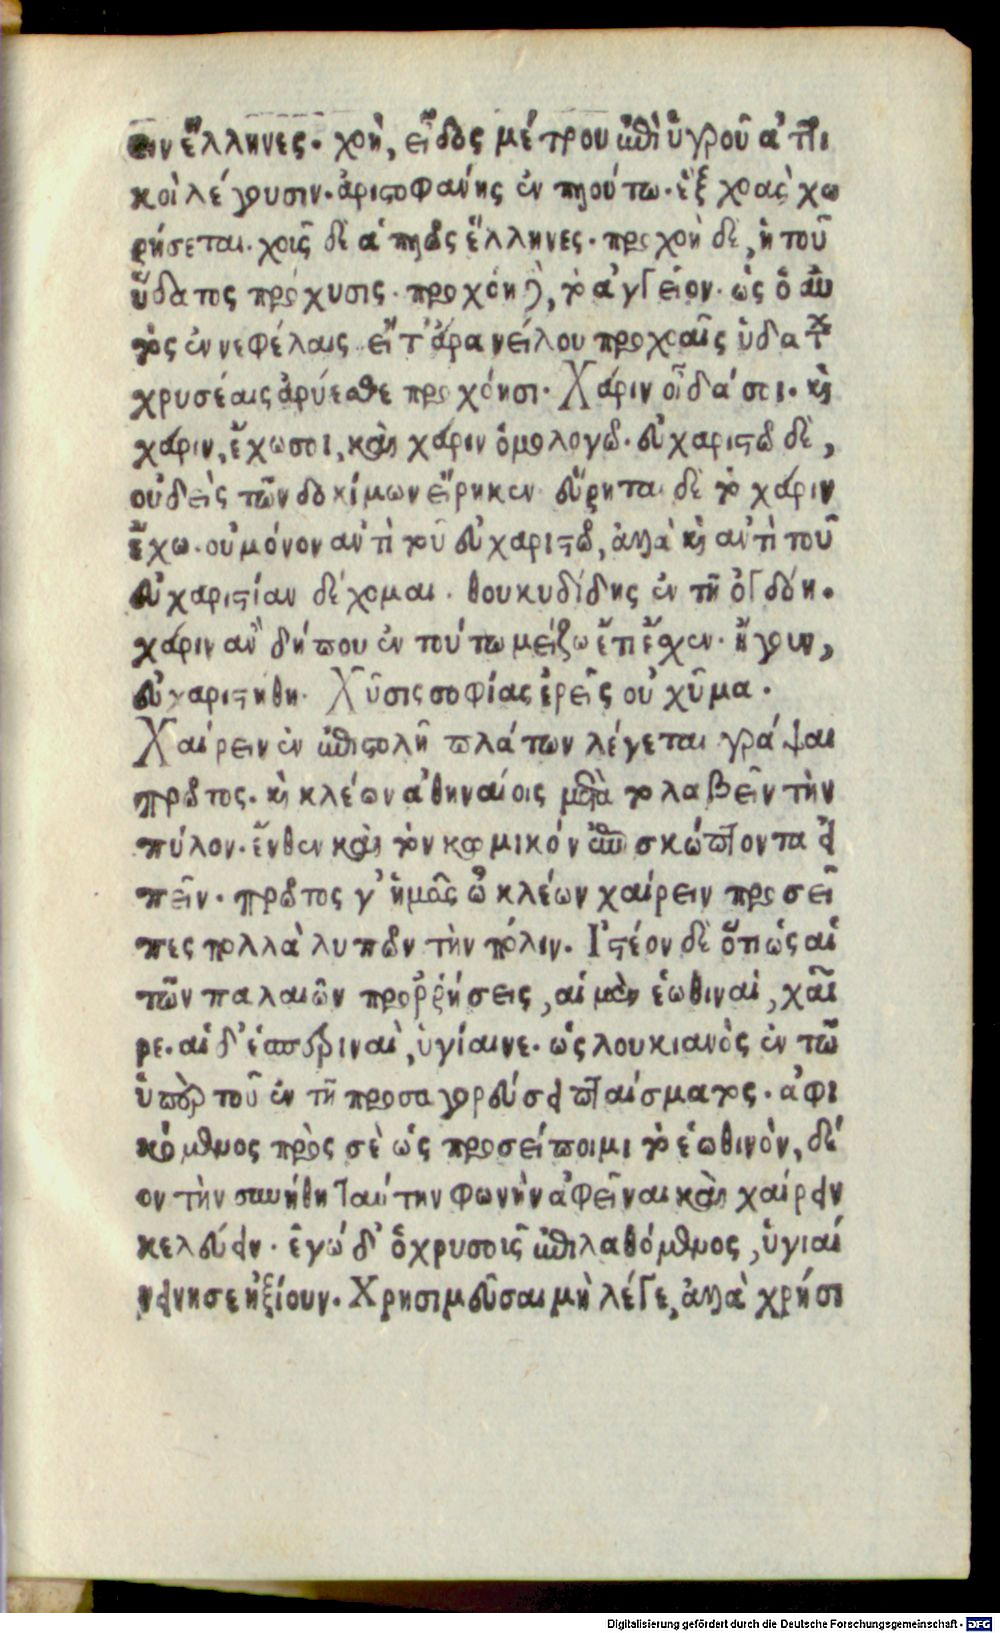 ειν ἕλληνες. χοὴ, εἶδος μέτρου ἐπὶ ὑγροῦ ἀττι
κοὶ λέγουσιν. ἀριστοφάνης ἐν πλούτω. ἓξ χοὰς χω
ρήσεται. χοῖς δὲ ἁπλῶς ἕλληνες. προχοὴ δὲ, ἡ τοῦ
ὕδατος πρόχυσις. προχόη δὲ, τὸ ἀγγεῖον. ὡς ὁ αὐ
τὸς ἐν νεφέλαις εἴτ' ἄρα νείλου προχοαῖς ὑδάτ
χρυσέαις ἀρύεσθε προχόησι. Χάριν οἶδά σοι. καὶ
χάριν, ἔχω σοι, καὶ χάριν ὁμολογῶ. εὐχαριστῶ δὲ,
οὐδεὶς τῶν δοκίμων εἴρηκεν εὕρηται δὲ τὸ χάριν
ἔχω. οὐ μόνον ἀντὶ τοῦ εὐχαριστῶ, ἀλλὰ καὶ ἀντὶ τοῦ
εὐχαριστίαν δέχομαι. θουκυδίδης ἐν τῆ ὀγδόη.
χάριν ἂν δήπου ἐν τούτω μείζω ἔτι ἔσχεν. ἤγουν,
εὐχαριστήθη. Χῦσις σοφίας ἐρεῖς οὐ χῦμα.
Χαίρειν ἐν ἐπιστολῆ πλάτων λέγεται γράψαι
πρῶτος. καὶ κλέων ἀθηναίοις μετὰ τὸ λαβεῖν τὴν
πύλον. ἔνθεν καὶ τὸν κωμικόν ἐπισκώπτοντα εἰ
πεῖν. πρῶτος γ' ἡμᾶς ὦ κλέων χαίρειν προσεῖ
πες πολλὰ λυπῶν τὴν πόλιν. Ἰστέον δὲ ὅτι ὡς αἱ
τῶν παλαιῶν προῤῥήσεις, αἱ μὲν ἑωθιναὶ, χαῖ
ρε. αἱ δ' ἑσπεριναὶ, ὑγίαινε. ὡς λουκιανὸς ἐν τῶ
ὑπὲρ τοῦ ἐν τῆ προσαγορεύσει πταίσματος. ἀφι
κόμενος πρὸς σὲ ὡς προσείποιμι τὸ ἑωθινὸν, δέ
ον τὴν συνήθη ταύτην φωνὴν ἀφεῖναι καὶ χαίρειν
κελεύειν. ἐγώ δ' ὁ χρυσοῖς ἐπιλαθόμενος, ὑγιαί
νειν ἠξίουν. Χρησιμεῦσαι μὴ λέγε, ἀλλὰ χρήσι
Digitalisierung gefördert durch die Deutsche Forschungsgemeinschaft · DFG